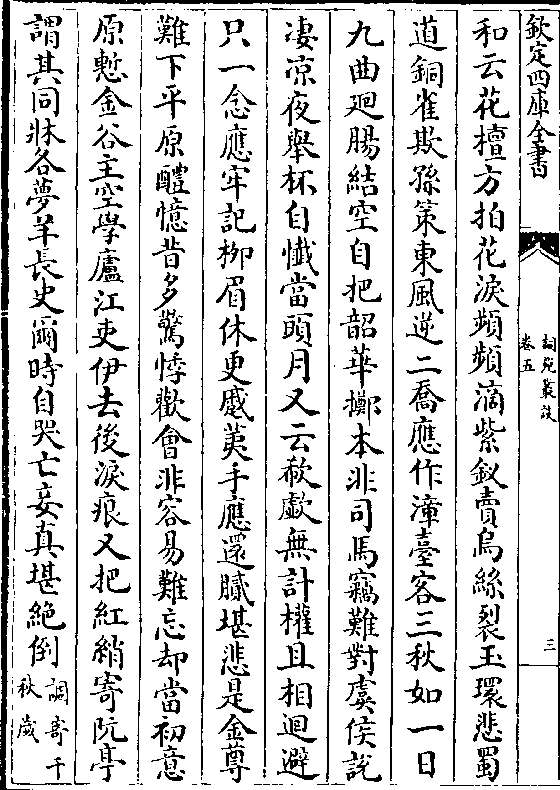 欽定四庫全書
詞苑叢談
卷五
三
和云花檀方拍花淚頻頻滴紫釵賣烏絲裂玉環悲蜀
道銅雀欺孫策東風逆二喬應作漳臺客三秋如一日
九曲廻腸結空自把韶華擲本非司馬竊難對虞侯說
凄凉夜舉杯自懺當頭月又云欷歔無計權且相迴避
只一念應牢記柳眉休更蹙荑手應還膩堪悲是金尊
難下平原醴憶昔多驚悸歡會非容易難忘却當初意
原慙金谷主空學廬江吏伊去後淚痕又把紅綃寄阮亭
謂其同牀各夢羊長史爾時自哭亡妾真堪絶倒
調寄千
秋歲